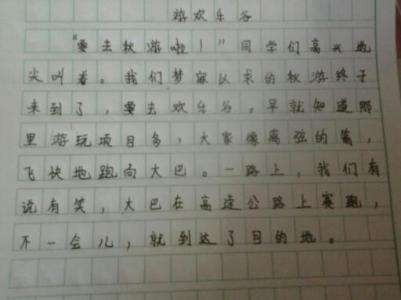 游欢乐谷
“要去秋游啦！”同学们高兴地
尖叫着。我们梦寐以求的秋游终于
来到了，要去欢乐谷。早就知道那
里游玩项目多，大家像离弦的箭，
飞快地跑向大巴。一路上，我们有
说有笑，大巴在高速公路上赛跑，
不一会儿，就到达了目的地。